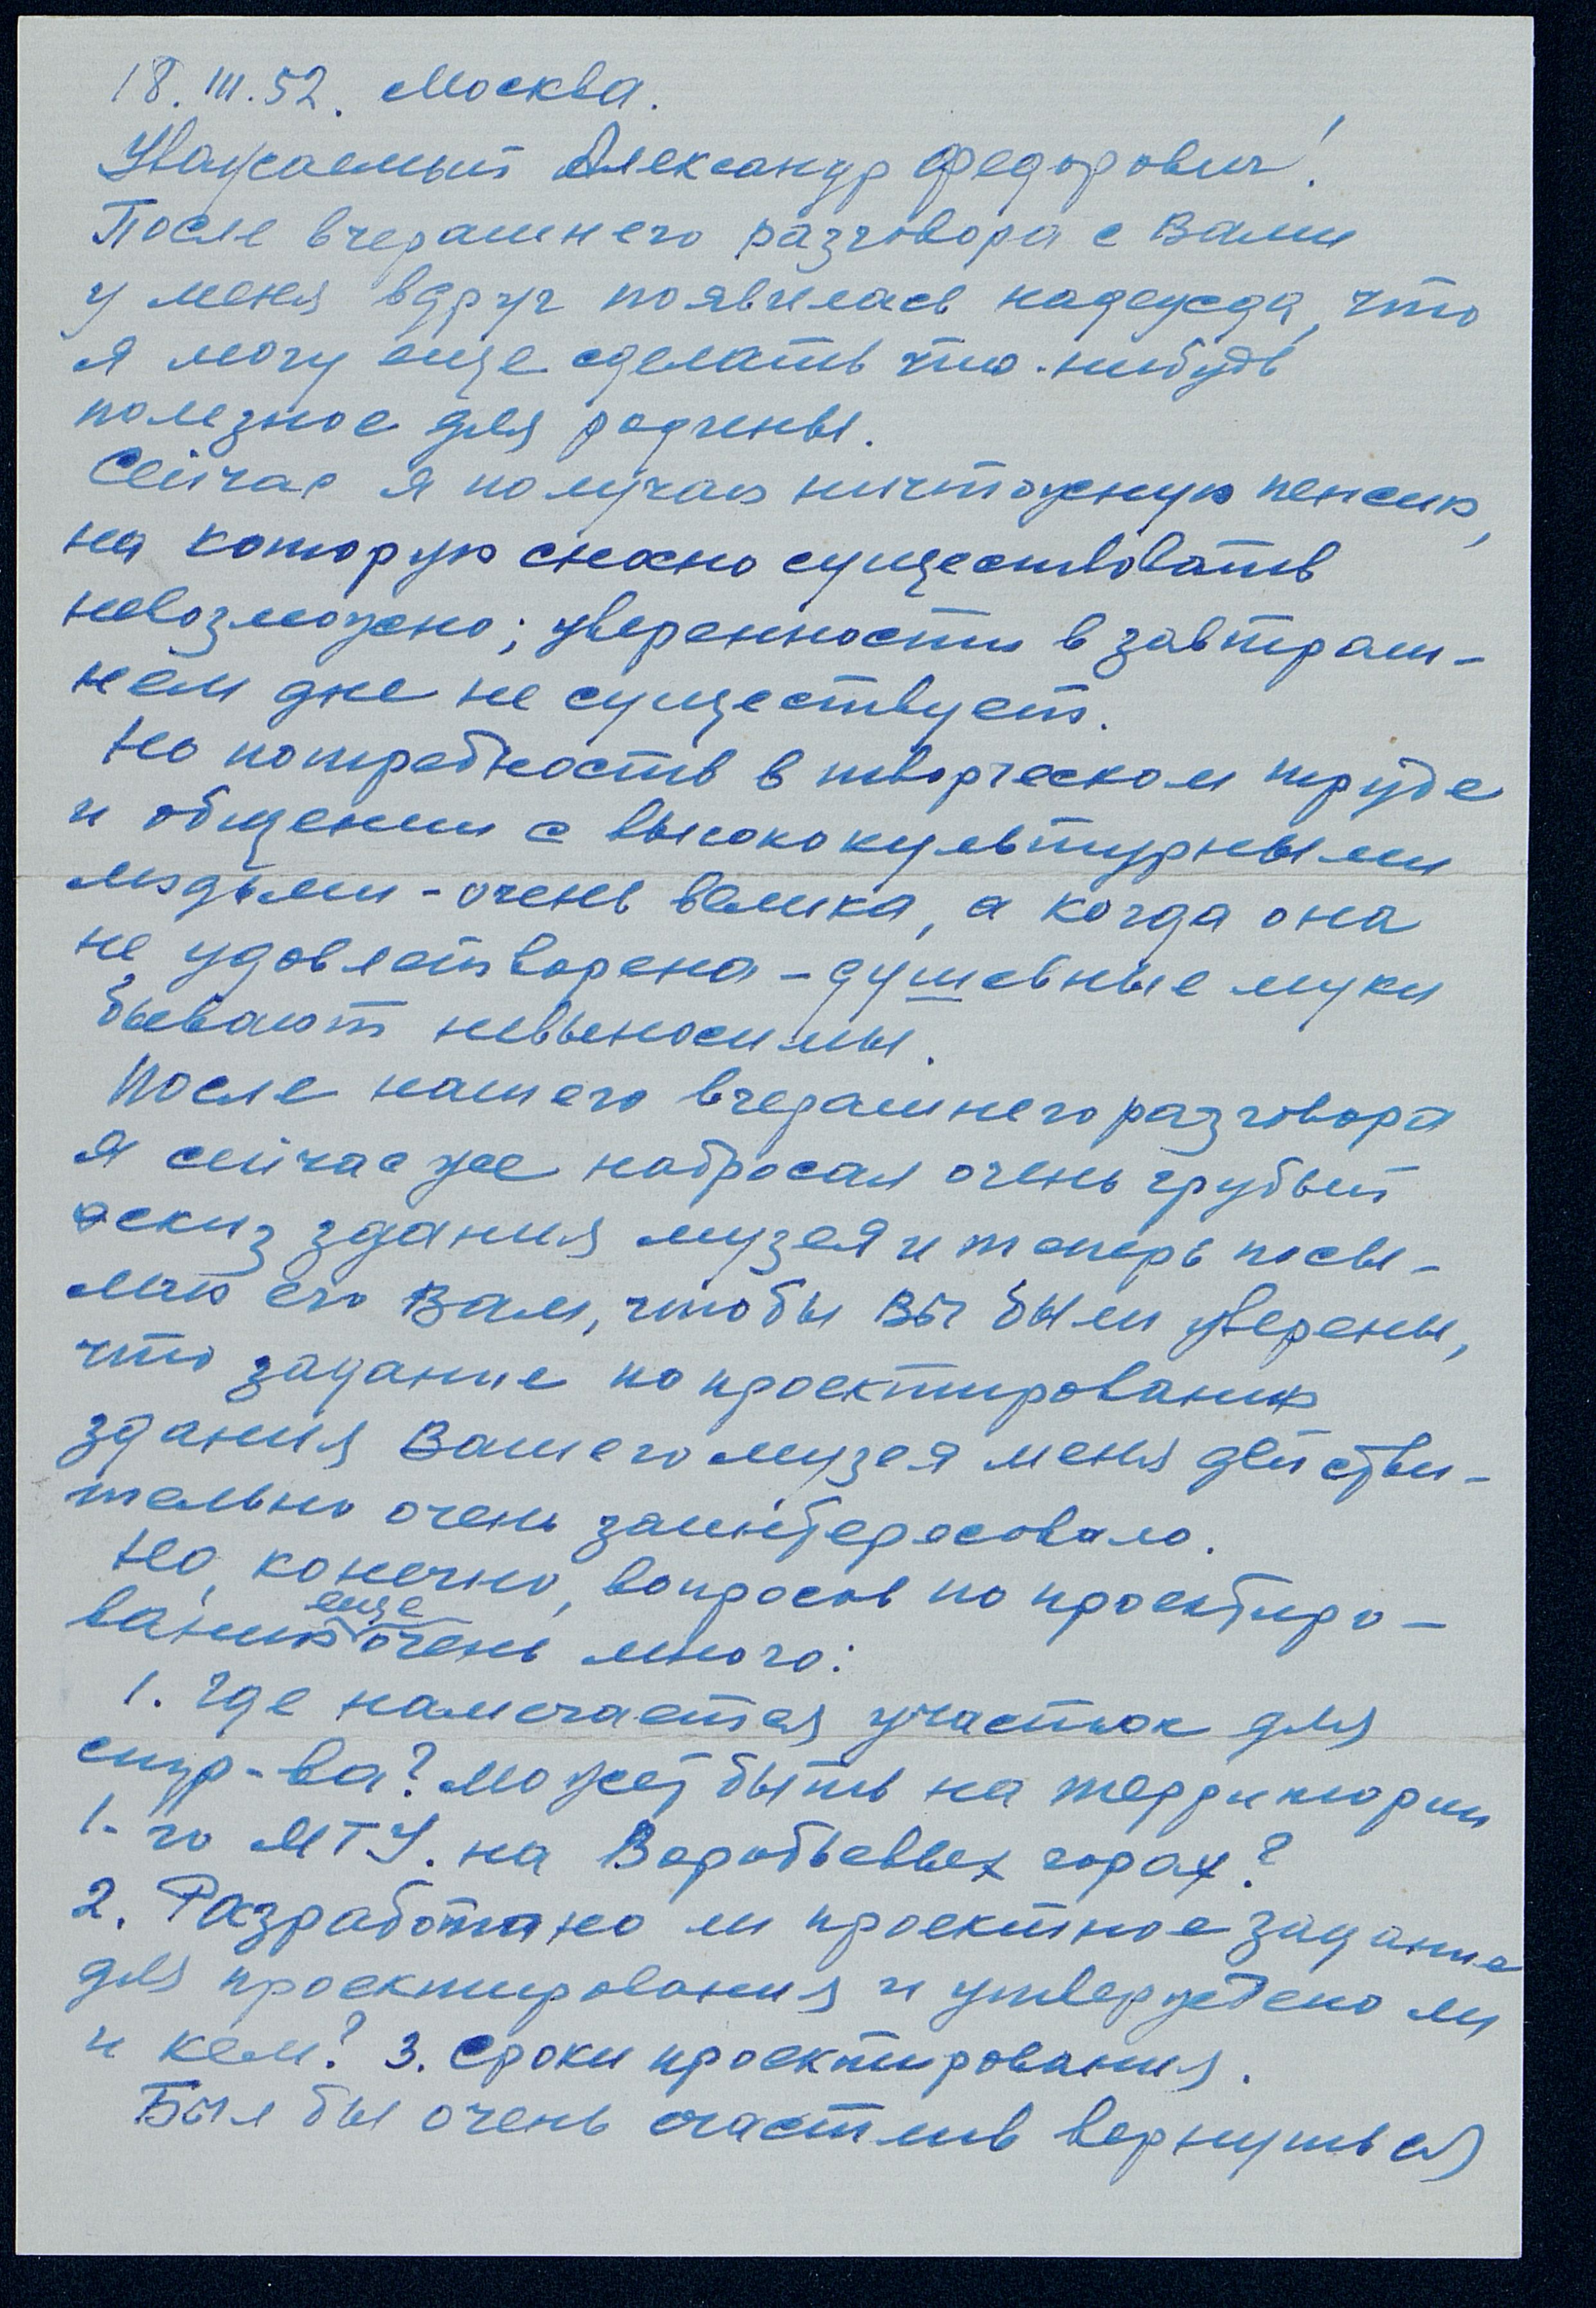 18.III.52. Москва.
Уважаемый Александр Федорович!
После вчерашнего разговора с Вами
у меня вдруг появилась надежда, что
я могу еще сделать что-нибудь
полезное для родины.
Сейчас я получаю ничтожную пенсию,
на которую сносно существовать
невозможно; уверенности в завтраш-
нем дне не существует.
Но потребность в творческом труде
и общении с высококультурными
людьми - очень велика, а когда она
не удовлетворена - душевные муки
бывают невыносимы.
После нашего вчерашнего разговора
я сейчас же набросал очень грубый
эскиз здания музея и теперь посы-
лаю его Вам, чтобы Вы были уверены,
что задание по проектированию
здания Вашего музея меня действи-
тельно очень заинтересовало.
Но, конечно, вопросов по проектиро-
ванию еще очень много:
1. Где намечается участок для
стр-ва? Может быть на территории
1-го МГУ. на Воробьевых горах?
2. Разработано ли проектное задание
для проектирования и утверждено ли
и кем? 3. Сроки проектирования.
Был бы очень счастлив вернуться